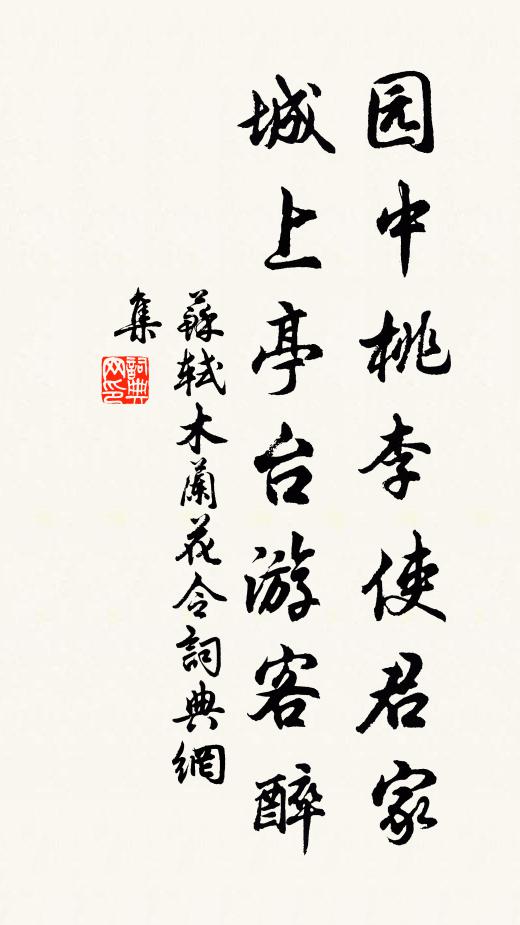 园中桃李使君家
城上亭台游客醉
蘇轼木蘭花令詞典網
集
詞典网印